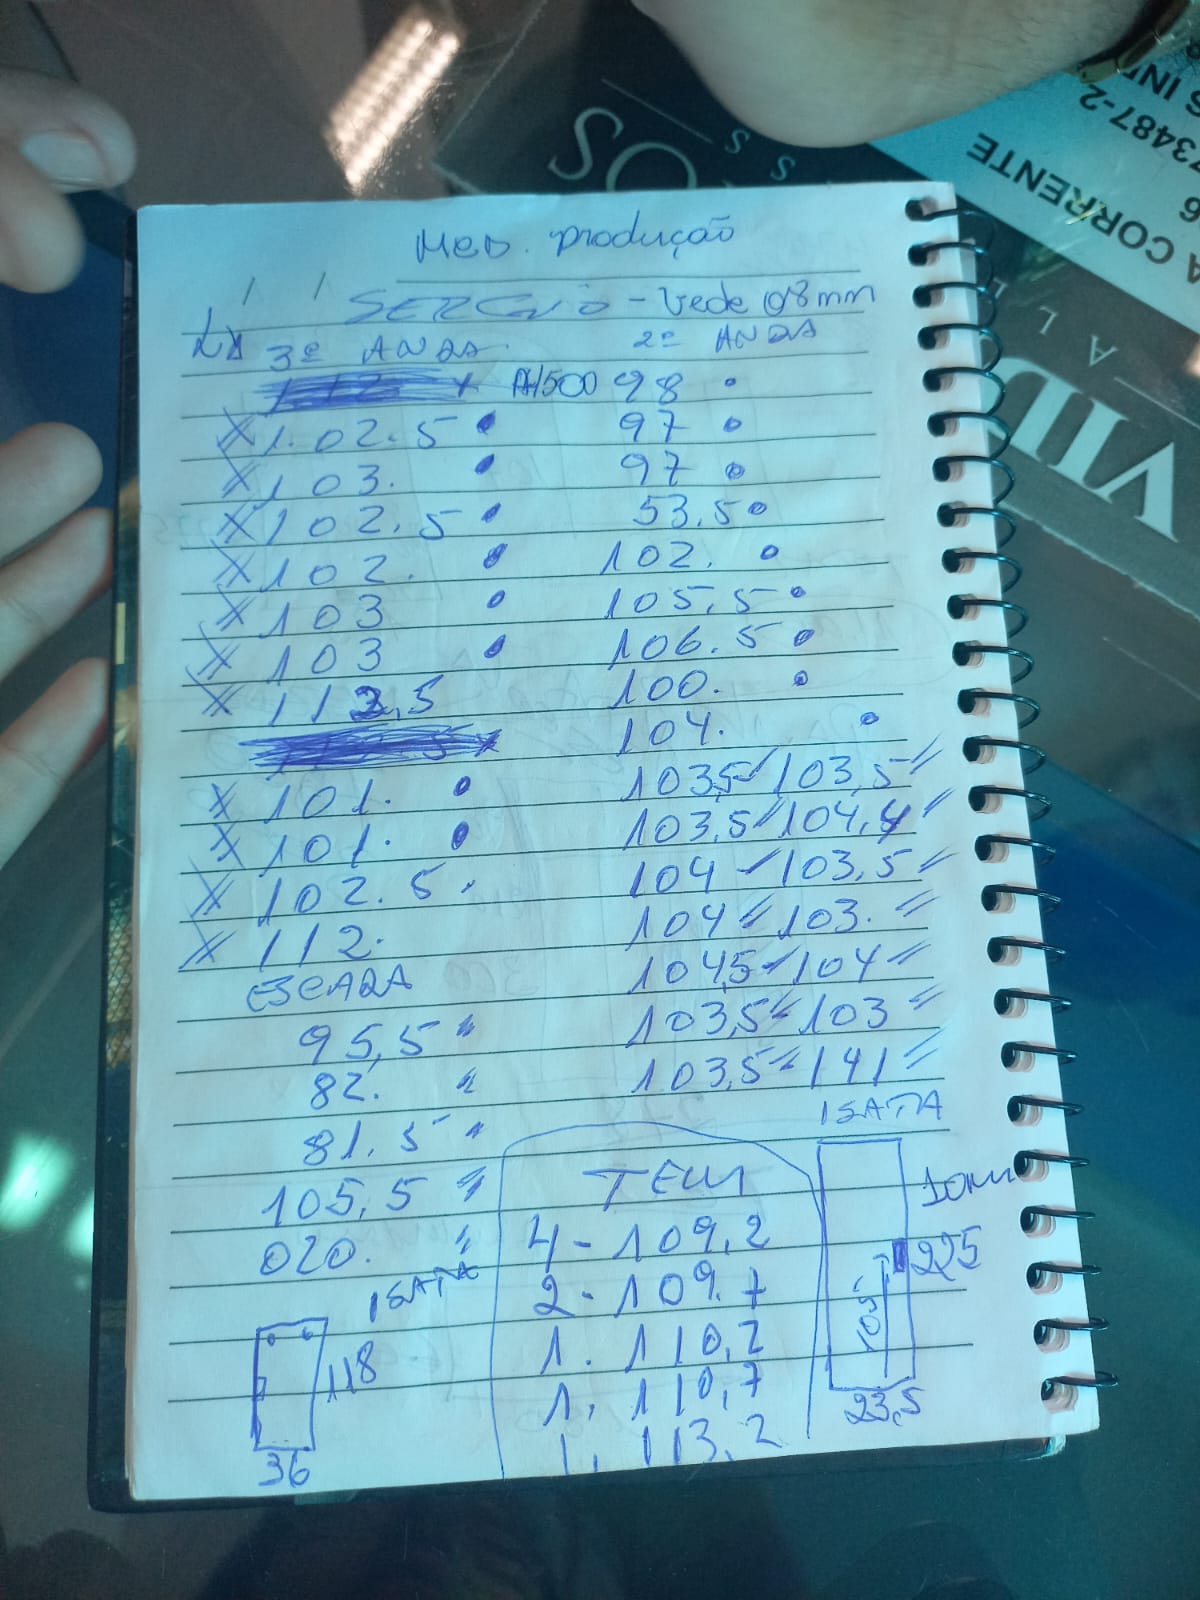 Med. produção
SERGIO - Verde 08mm
3º ANDA. 2º ANDA
112 x A/500 98
X 1.02.5 97
X 103. 97
X 102.5 53.5
X 102. 102.
X 103 105.5
X 103 106.5
X 112,5 100.
104.
X 101. 103,5 103,5
X 101. 103,5 104,4
X 102.5 104 103,5
X 112. 104 103.
ESCADA 104,5 104
95,5 103,5 103
82. 103,5 141
81.5 1 SATA
105,5
020.
1 SATA
118
36
TEM
4 - 109,2
2 - 109.7
1. 110,2
1. 110,7
1. 113,2
10mm
225
105
23,5
VID
SOS
A CORRENTE
73487-2
S IN
6